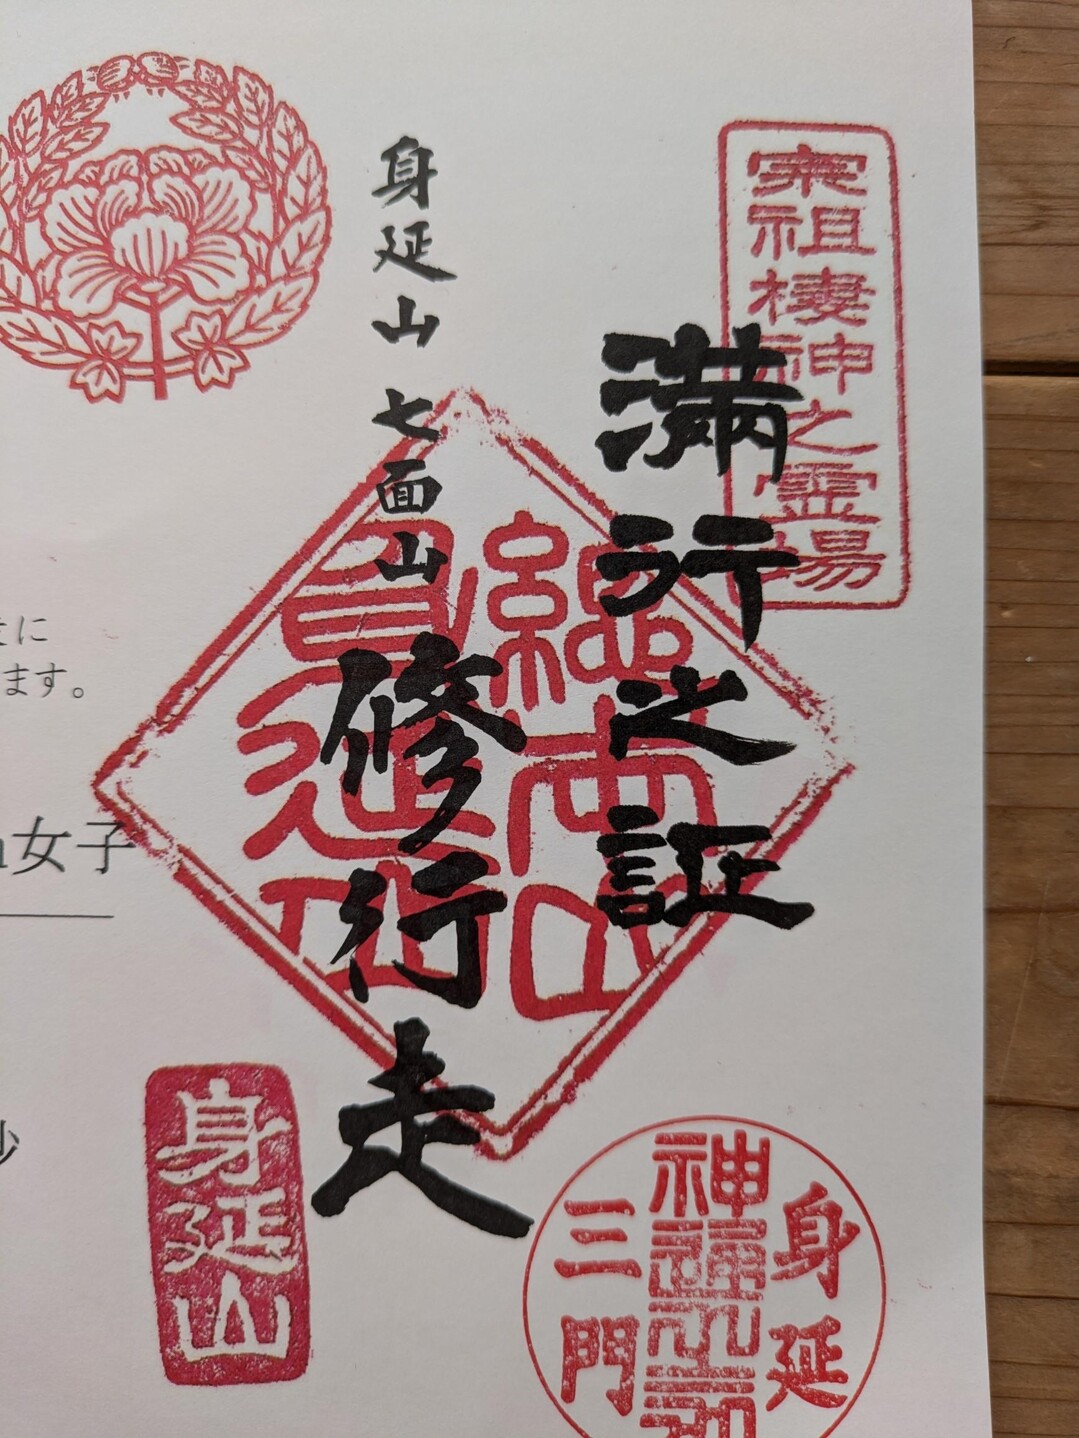 宗祖棲神之霊場
満行之証
身延山 七面山
修行走
總本山
身延山
に
ます。
女子
身延山
身延
三門